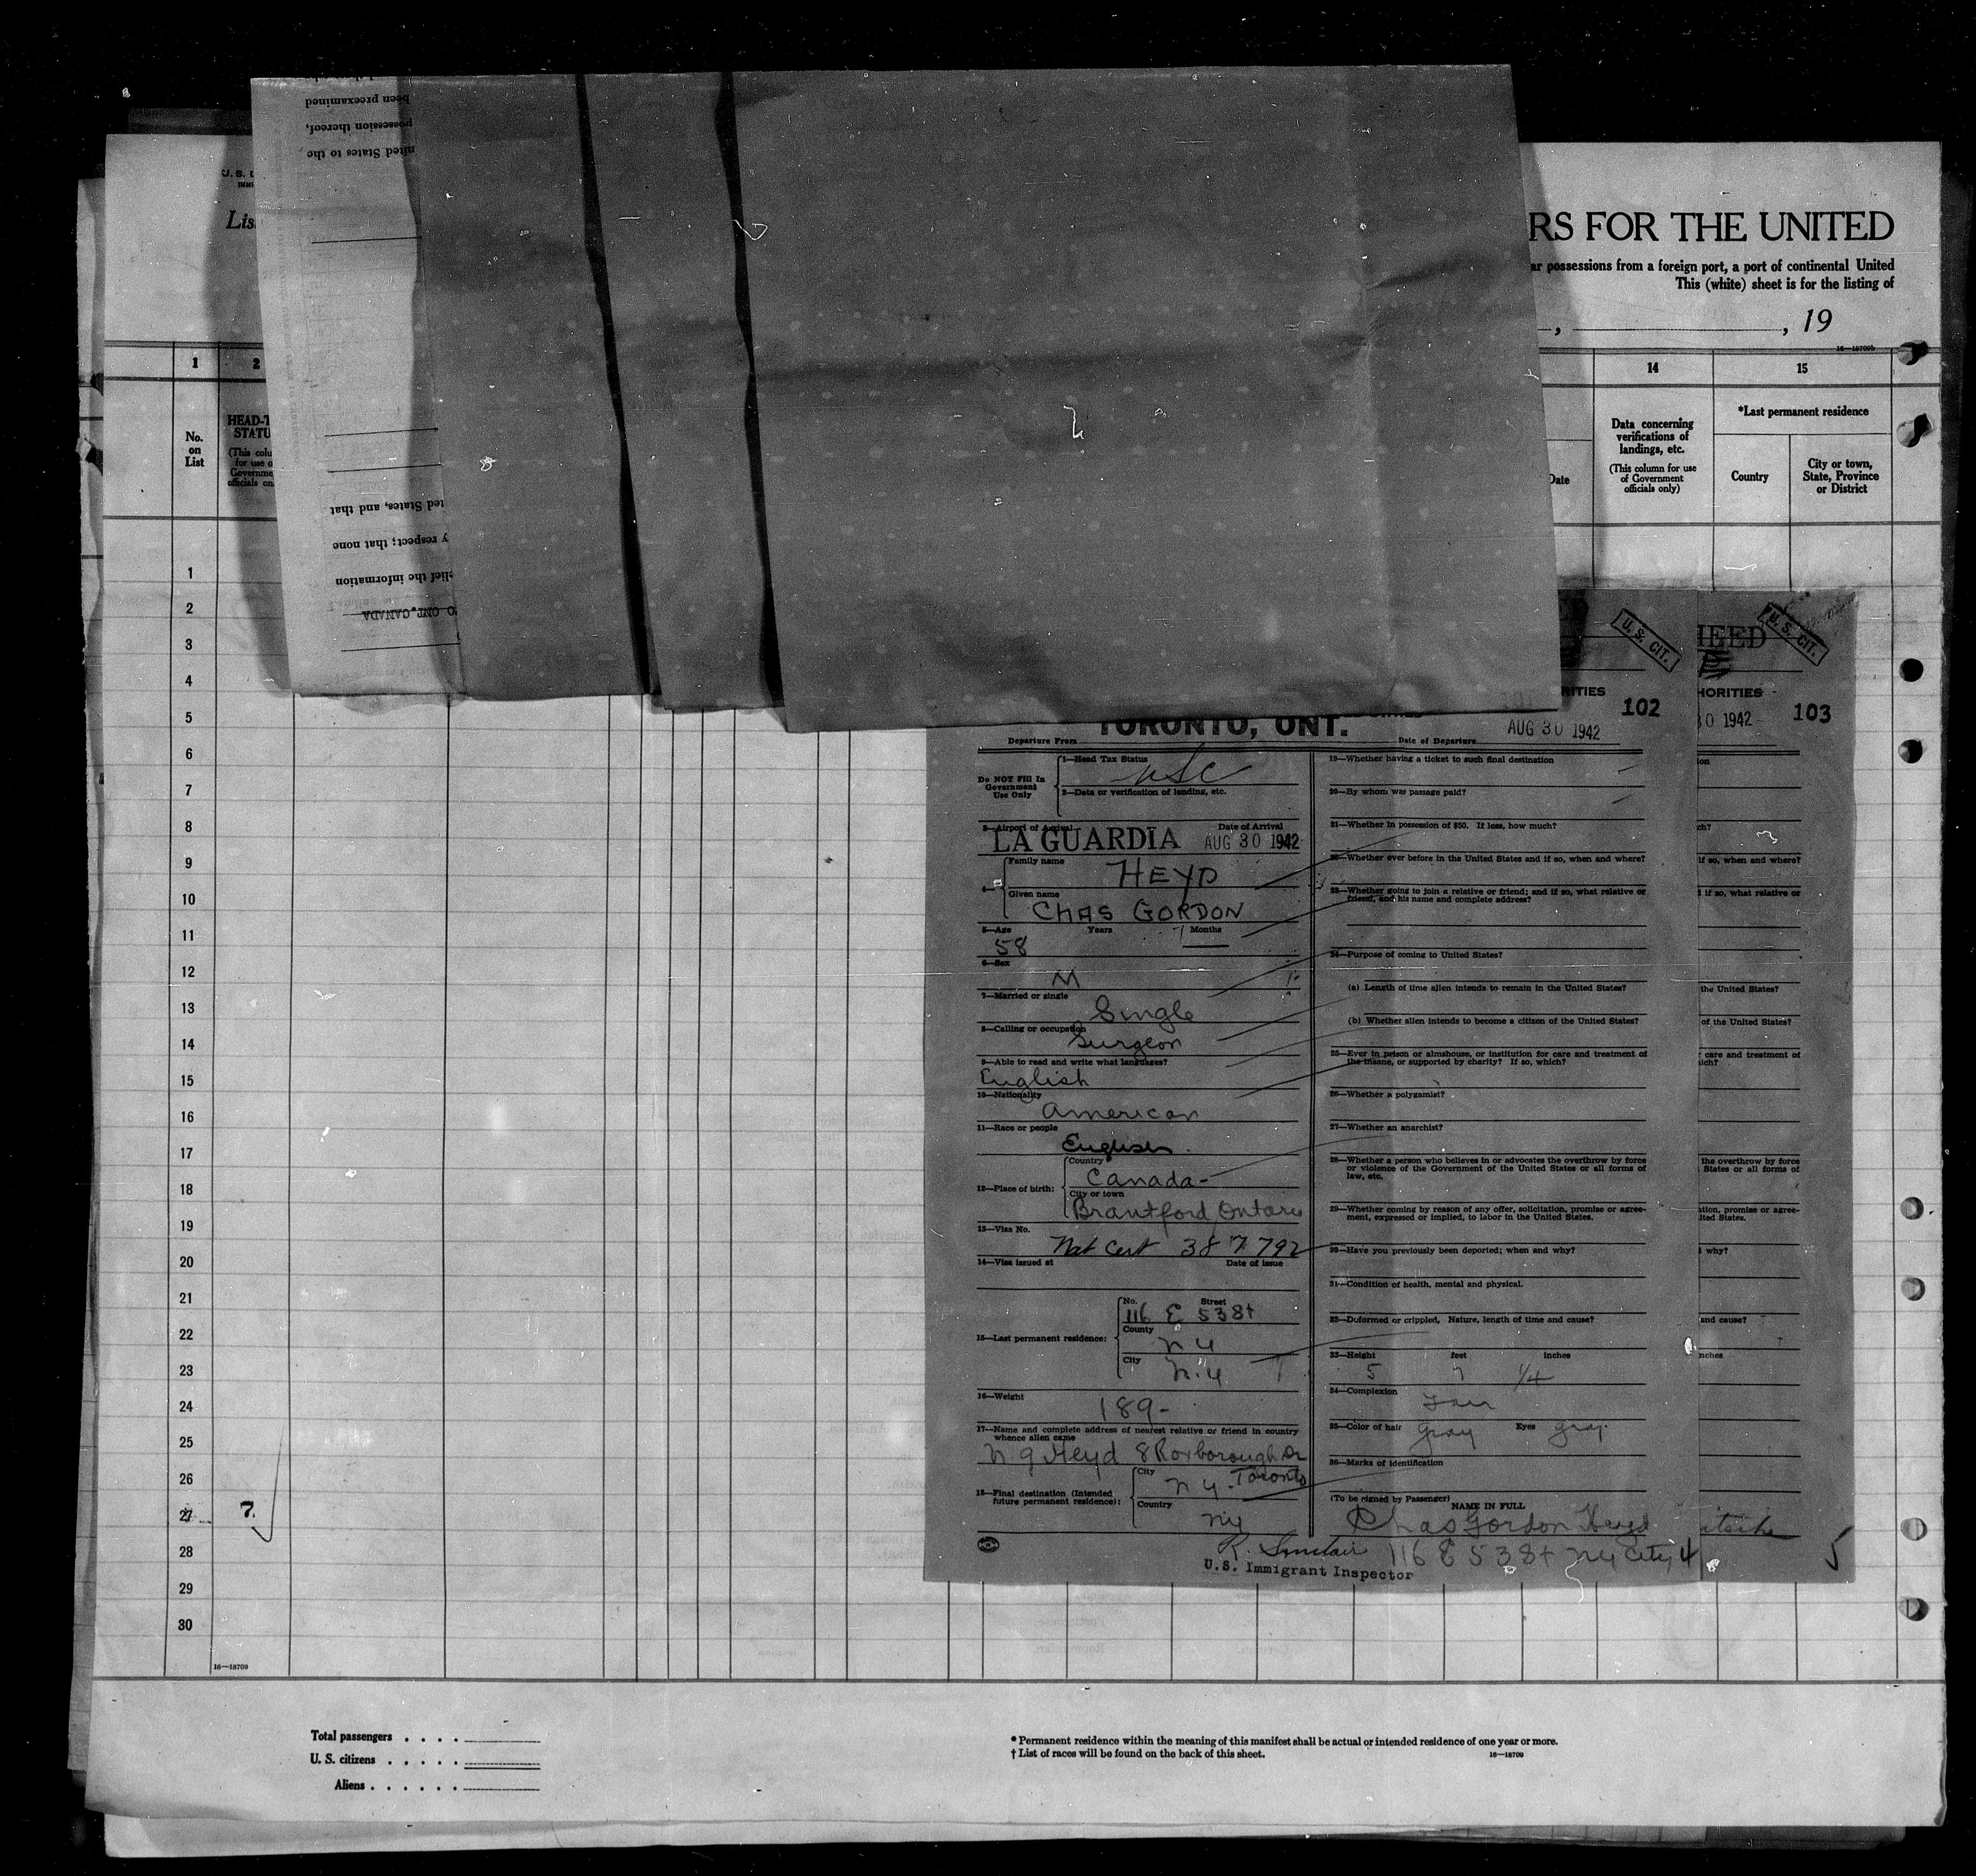 been preexamined
possession thereof,
United States to the
U. S. D
IMMI
Lis
RS FOR THE UNITED
ar possessions from a foreign port, a port of continental United
This (white) sheet is for the listing of
, , 19
16—18709b
1 2 14 15
No.
on
List
HEAD-T
STATU
(This colu
for use o
Governme
officials on
Date
Data concerning
verifications of
landings, etc.
(This column for use
of Government
officials only)
*Last permanent residence
Country
City or town,
State, Province
or District
ted States, and that
y respect; that none
elief the information
O ONT. CANADA
1
2
3
4
5
6
7
8
9
10
11
12
13
14
15
16
17
18
19
20
21
22
23
24
25
26
27
7.
28
29
30
16—18709
U. S. CIT.
RITIES 102
TORONTO, ONT.
AUG 30 1942
Departure From Date of Departure
Do NOT Fill In
Government
Use Only
1—Head Tax Status
USC
2—Data or verification of landing, etc.
3—Airport of Arrival Date of Arrival
LA GUARDIA AUG 30 1942
4—
Family name
HEYD
Given name
CHAS GORDON
5—Age Years Months
58 —
6—Sex
M
7—Married or single
Single
8—Calling or occupation
Surgeon
9—Able to read and write what languages?
English
10—Nationality
American
11—Race or people
English
12—Place of birth:
Country
Canada-
City or town
Brantford, Ontario
13—Visa No.
Nat Cert 387792
14—Visa issued at Date of issue
15—Last permanent residence:
No. Street
116 E 53 St
County
N Y
City
N.Y
16—Weight
189-
17—Name and complete address of nearest relative or friend in country
whence alien came
N G Heyd 8 Roxborough Dr
Toronto
18—Final destination (Intended
future permanent residence):
City
N Y.
Country
NY
R. Sinclair
U.S. Immigrant Inspector
19—Whether having a ticket to such final destination
20—By whom was passage paid?
21—Whether in possession of $50. If less, how much?
22—Whether ever before in the United States and if so, when and where?
23—Whether going to join a relative or friend; and if so, what relative or
friend, and his name and complete address?
24—Purpose of coming to United States?
(a) Length of time alien intends to remain in the United States?
(b) Whether alien intends to become a citizen of the United States?
25—Ever in prison or almshouse, or institution for care and treatment of
the insane, or supported by charity? If so, which?
26—Whether a polygamist?
27—Whether an anarchist?
28—Whether a person who believes in or advocates the overthrow by force
or violence of the Government of the United States or all forms of
law, etc.
29—Whether coming by reason of any offer, solicitation, promise or agree-
ment, expressed or implied, to labor in the United States.
30—Have you previously been deported; when and why?
31—Condition of health, mental and physical.
32—Deformed or crippled, Nature, length of time and cause?
33—Height feet inches
5 7 1/4
34—Complexion
Fair
35—Color of hair gray Eyes gray
36—Marks of identification
(To be signed by Passenger)
NAME IN FULL
Chas Gordon Heyd
116 E 53 St NY City 4
U. S. CIT.
HEED
HORITIES
30 1942 103
ion
ch?
if so, when and where?
d if so, what relative or
the United States?
of the United States?
r care and treatment of
ich?
the overthrow by force
States or all forms of
ation, promise or agree-
ited States.
why?
and cause?
nches
5
Total passengers . . . .
U. S. citizens . . . . .
Aliens . . . . . .
* Permanent residence within the meaning of this manifest shall be actual or intended residence of one year or more.
† List of races will be found on the back of this sheet. 16—18709